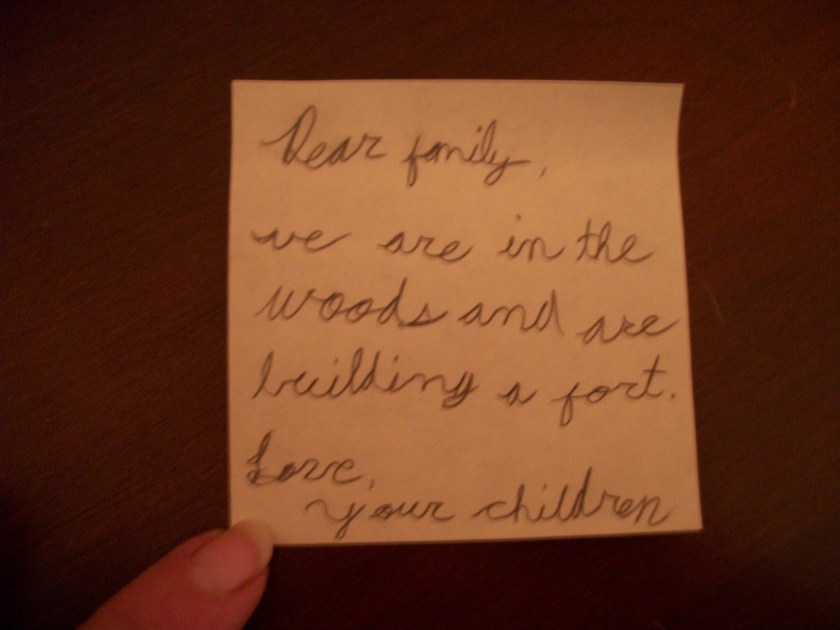 Dear family,
we are in the
woods and are
building a fort.
Love,
your children